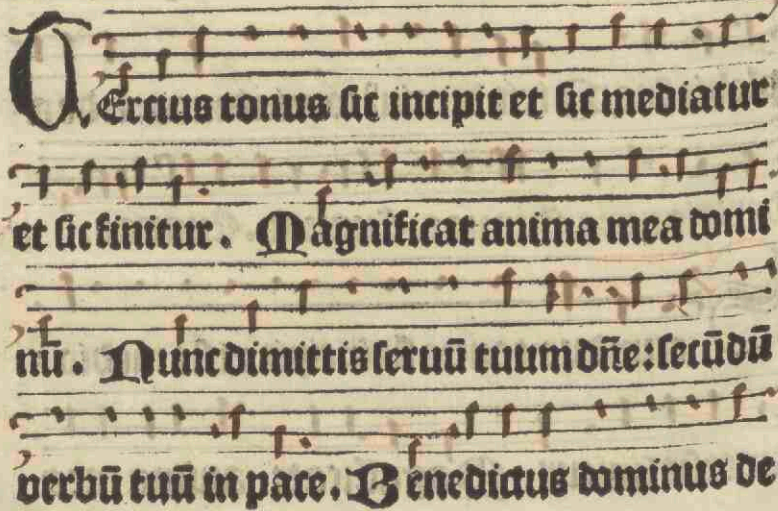 TErcius tonus sic incipit et sic mediatur
et sic finitur. Magnificat anima mea domi
nū. Nunc dimittis seruū tuum dn̄e: secūdū
verbū tuū in pace. Benedictus dominus de